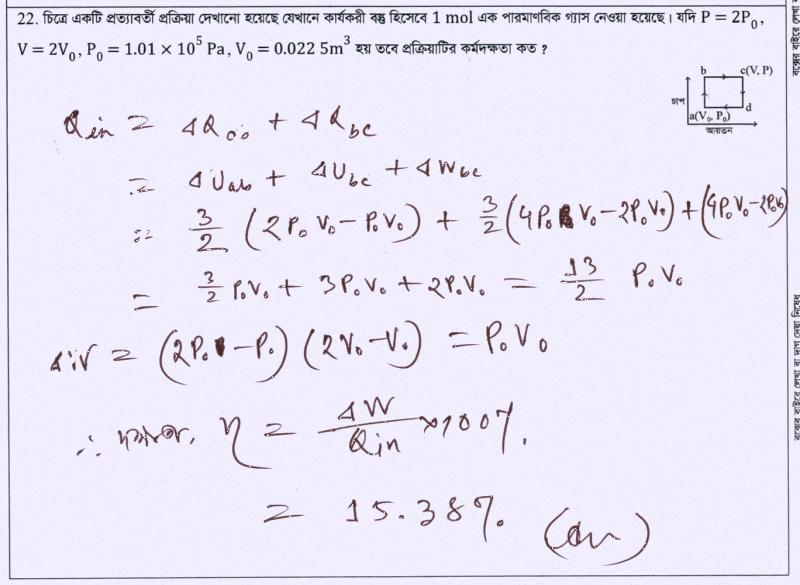 22. চিত্রে একটি প্রত্যাবর্তী প্রক্রিয়া দেখানো হয়েছে যেখানে কার্যকরী বস্তু হিসেবে 1 mol এক পারমাণবিক গ্যাস নেওয়া হয়েছে। যদি P = 2P₀,
V = 2V₀, P₀ = 1.01 × 10⁵ Pa, V₀ = 0.022 5m³ হয় তবে প্রক্রিয়াটির কর্মদক্ষতা কত ?
b c(V, P)
চাপ
d
a(V₀, P₀)
আয়তন
Qin = ΔQ + ΔQbc
= ΔUab + ΔUbc + ΔWbc
= 3/2 (2P₀V₀ – P₀V₀) + 3/2 (4P₀V₀ – 2P₀V₀) + (4P₀V₀ – 2P₀V₀)
= 3/2 P₀V₀ + 3P₀V₀ + 2P₀V₀ = 13/2 P₀V₀
ΔW = (2P₀ – P₀) (2V₀ – V₀) = P₀V₀
∴ η = ΔW/Qin × 100%.
= 15.38%. (Ans)